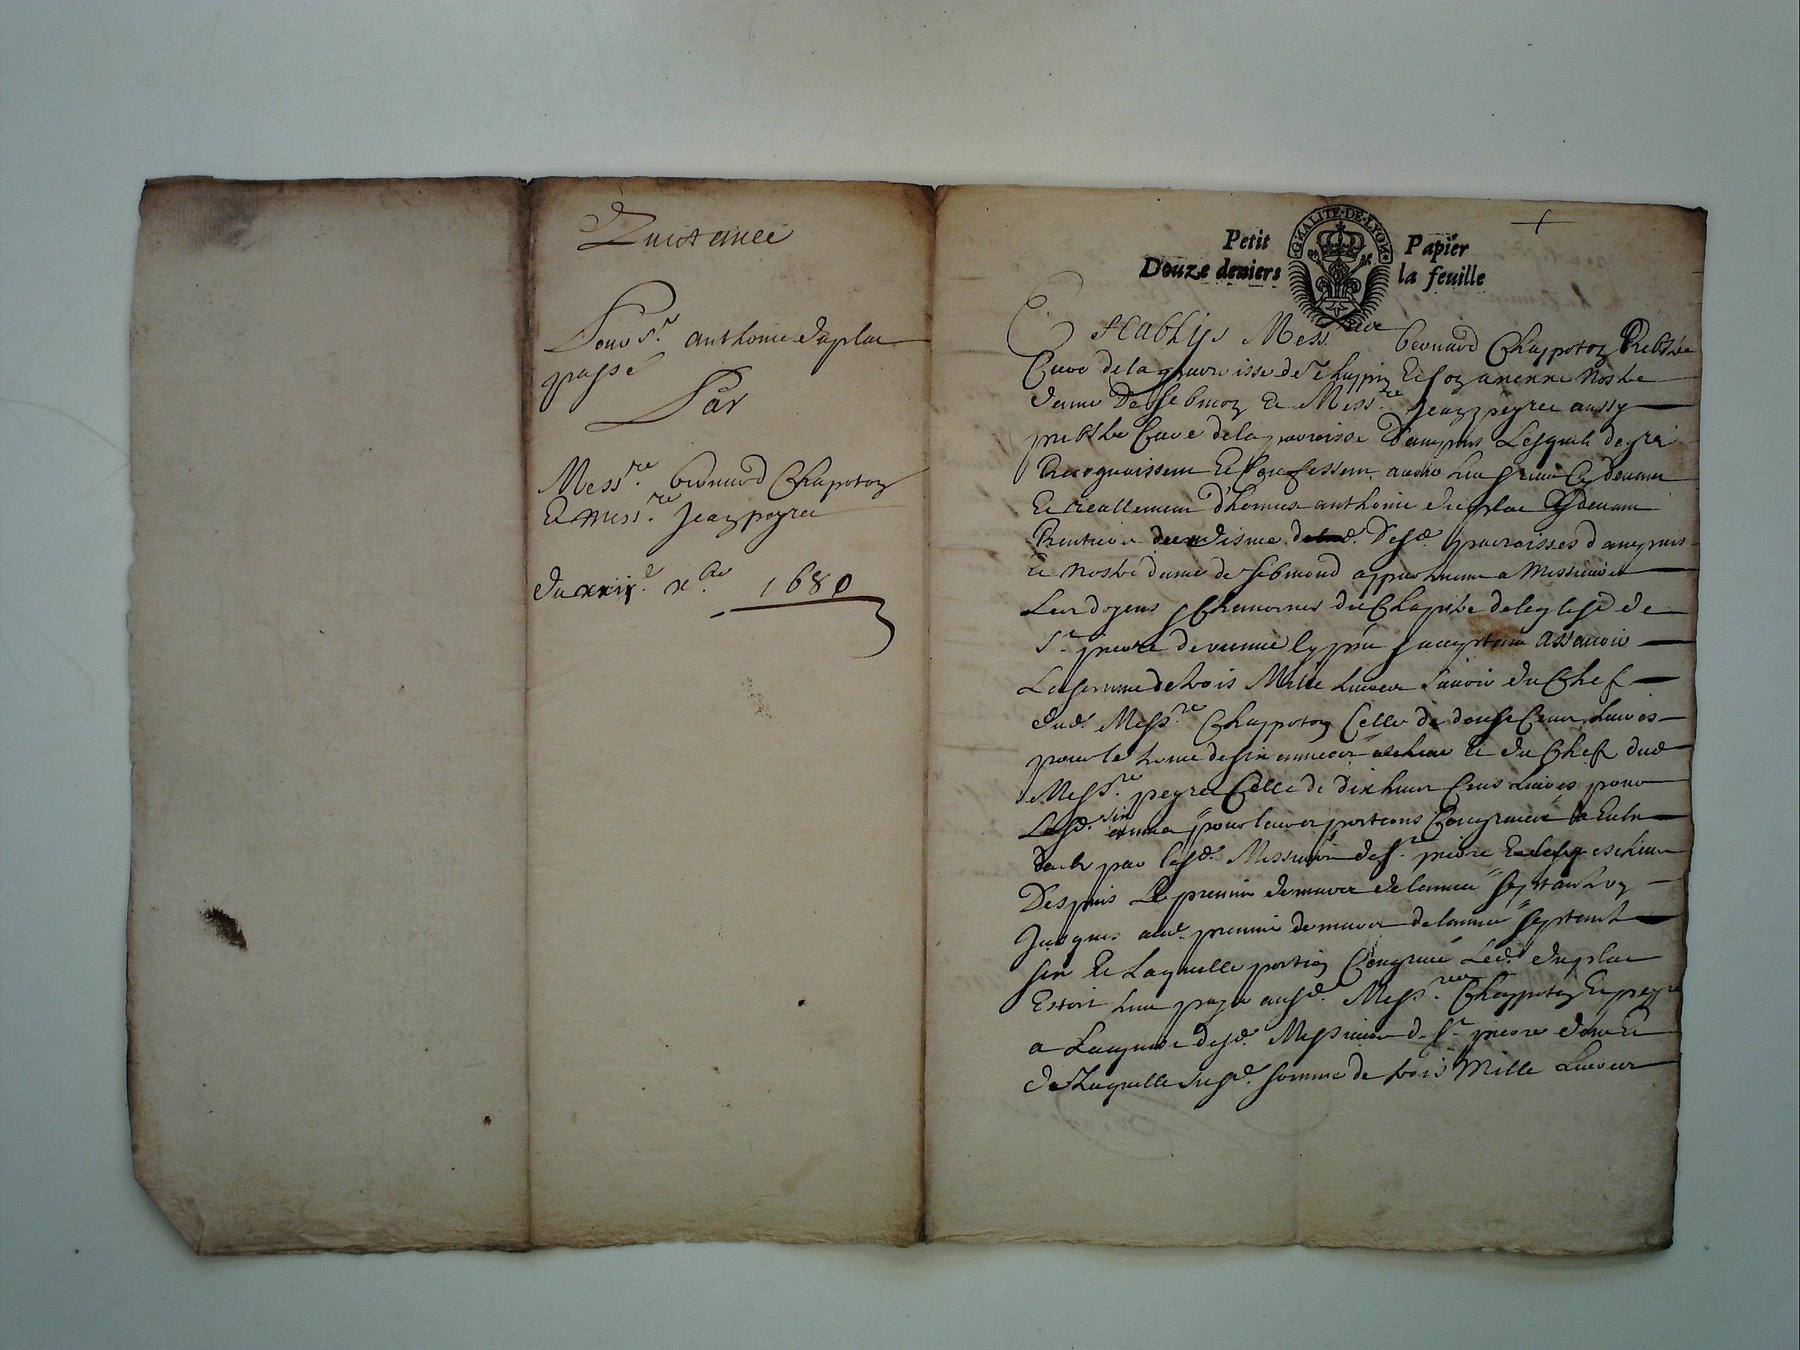 Quictance
Pour Sr. anthonie duplac
passé
Par
Messre. bernard Chapoton
Et messre. Jean peyret
du xxiie. xbre 1680
GNALITE·DE·LYON
Petit Papier
Douze deniers la feuille
Establys Messire bernard Chappoton Prebstre
Curé de la parroisse de et son annexe Nostre
dame De Sebmon Et Messre. Jean peyret aussy
prebstre Curé de la parroisse D'ampuis Lesquels de gré
Recognoissent Et Confessent avoir heu Cy devant
Et reallement D'honneste anthonie duplac Cy devant
Rentier du disme Desd. parroisses d'ampuis
Et Nostre dame de Sebmond appartenant a Messieurs
Les doyens Chanoines du Chapitre de leglise de
St. pierre de vienne Icy pnt acceptant Assavoir
La somme de trois Mille livres Scavoir du Chef
dud. Messre. Chappoton Celle de douse Cent Livres
pour le terme de six années Et du Chef dud
Messre. peyret Celle de dix huict Cens Livres pour
Lesd. six années pour leur portions Congrues a Eulx
par lesd. Messieurs de St. pierre escheues
Despuis Le premier de lannée septante
Jusques aud. premier de lannée septante
six Et Laquelle portion Congrue Led. duplac
Estoit tenu payer ausd. Messres Chappoton Et peyret
a Lacquit desd. Messieurs de St. pierre
de Laquelle susd. somme de trois Mille Livres